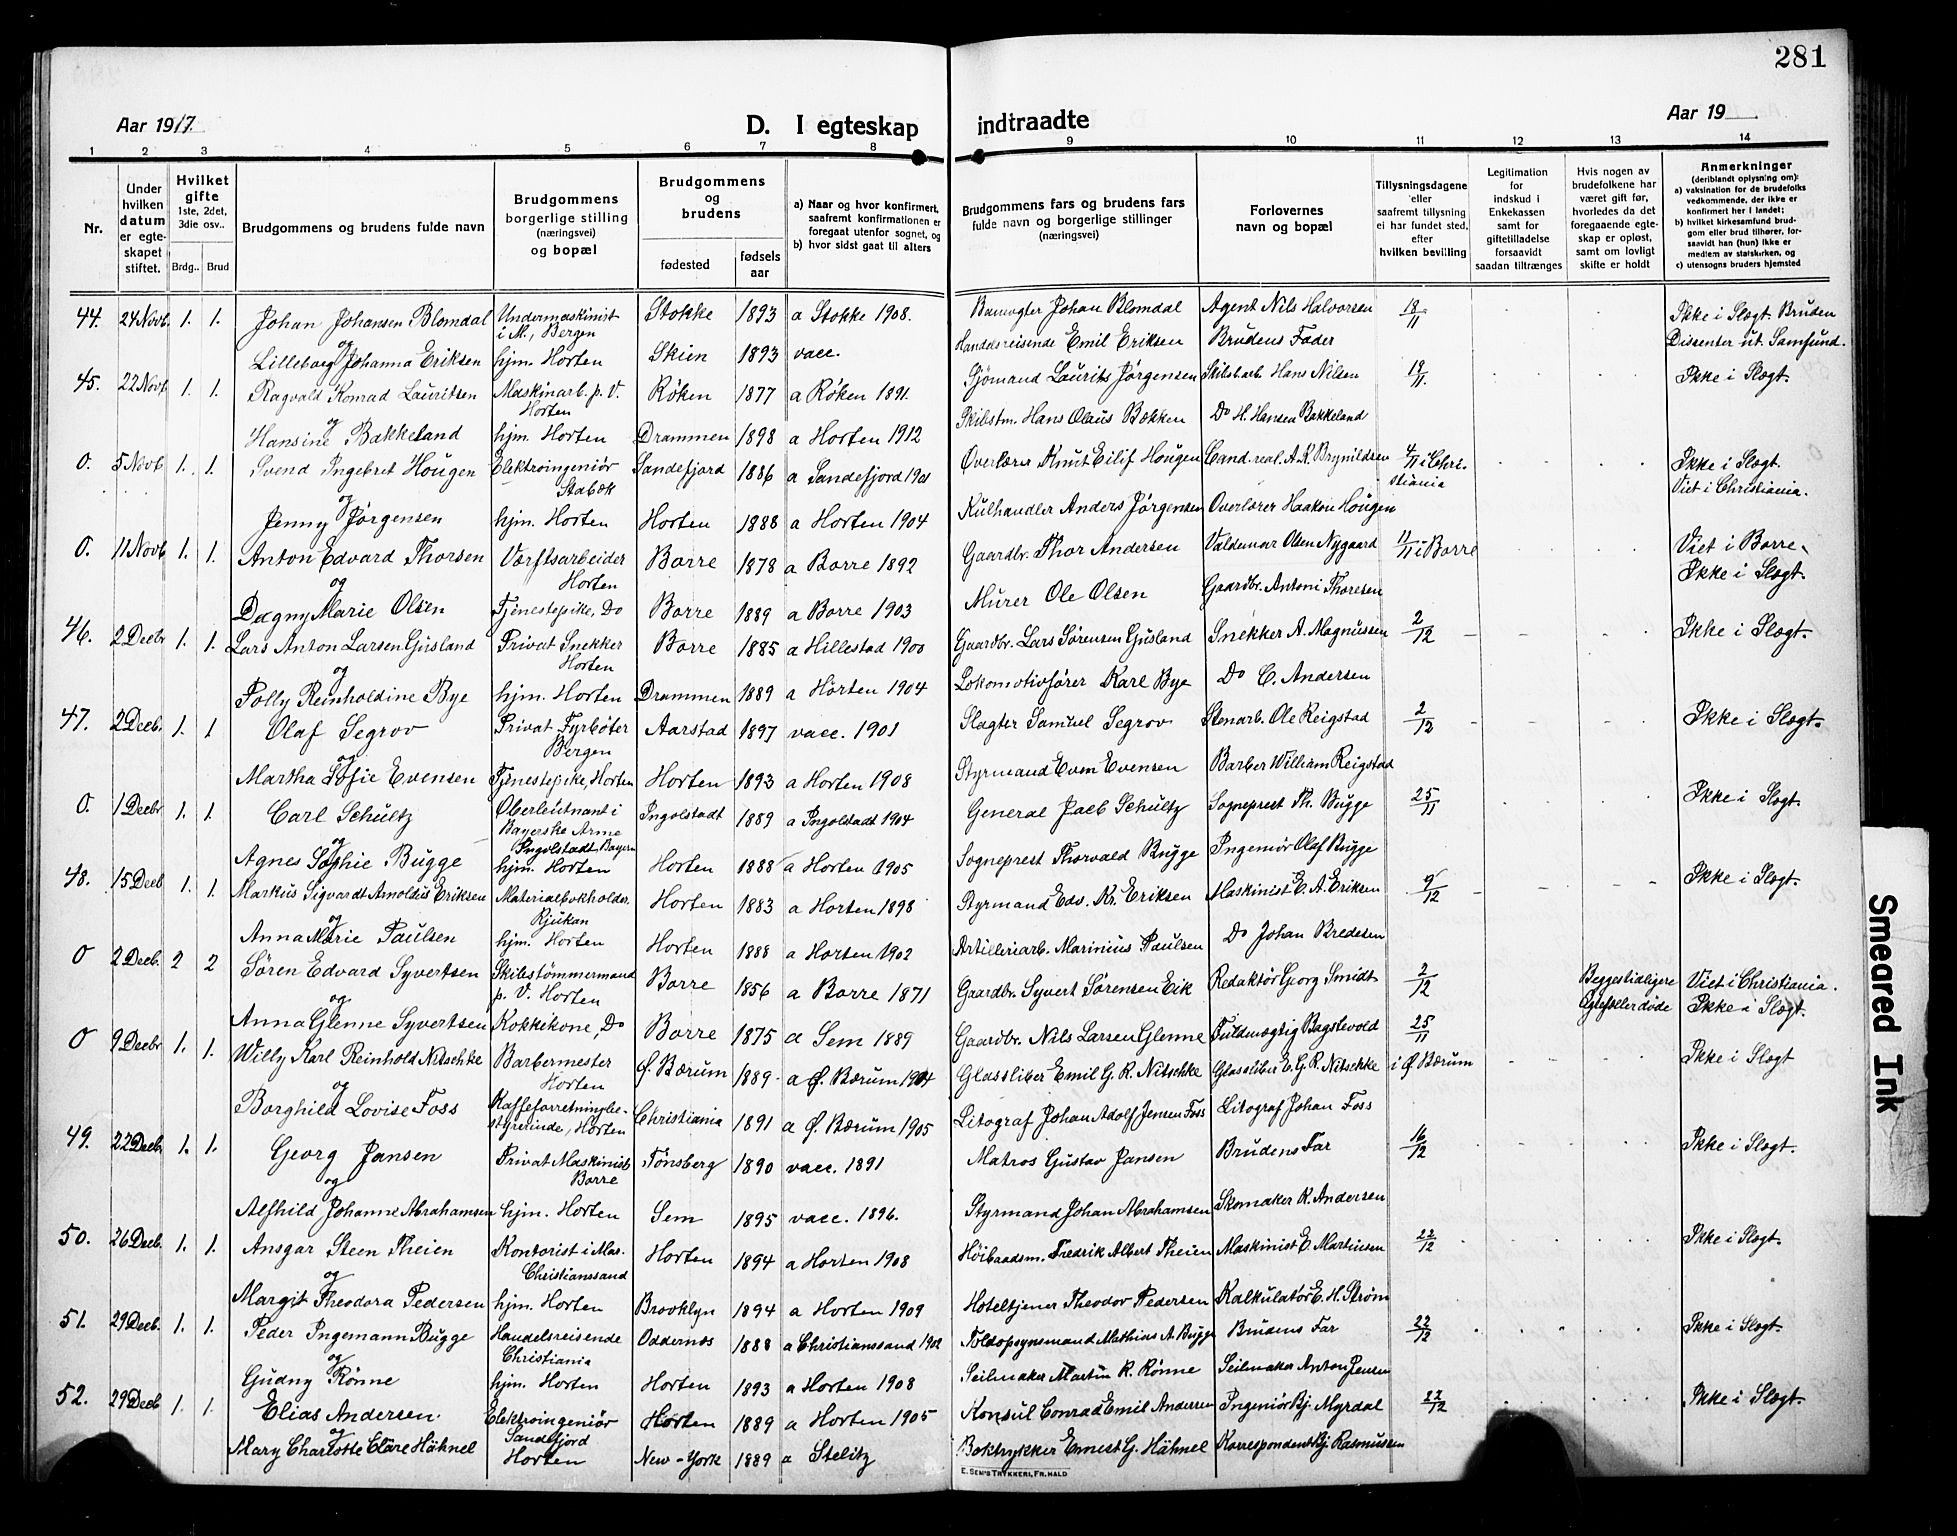 281
Aar 1917.
D. I egteskap indtraadte
Aar 19
1 2 3 4 5 6 7 8 9 10 11 12 13 14
Nr.
Under hvilken datum er egteskapet stiftet.
Hvilket gifte 1ste, 2det, 3die osv..
Brdg.. Brud
Brudgommens og brudens fulde navn
Brudgommens borgerlige stilling (næringsvei) og bopæl
Brudgommens og brudens
fødested
fødsels aar
a) Naar og hvor konfirmert, saafremt konfirmationen er foregaat utenfor sognet, og
b) hvor sidst gaat til alters
Brudgommens fars og brudens fars fulde navn og borgerlige stillinger (næringsvei)
Forlovernes navn og bopæl
Tillysningsdagene eller saafremt tillysning ei har fundet sted, efter hvilken bevilling
Legitimation for indskud i Enkekassen samt for giftetilladelse forsaavidt saadan tiltrænges
Hvis nogen av brudefolkene har været gift før, hvorledes da det foregaaende egteskap er opløst, samt om lovligt skifte er holdt
Anmerkninger (deriblandt oplysning om): a) vaksination for de brudefolks vedkommende, der ikke er konfirmert her i landet; b) hvilket kirkesamfund brudgom eller brud tilhører, forsaavidt han (hun) ikke er medlem av statskirken, og c) utensogns bruders hjemsted
44. 24 Novb. 1. 1. Johan Johansen Blomdal Undermaskinist i M., Bergen Stokke 1893 a Stokke 1908. Johan Blomdal Agent Nils Halvorsen 18/11 Ikke i Slægt. Bruden
og Lilleborg Johanna Eriksen hjm. Horten Skien 1893 vacc. Handelsreisende Emil Eriksen Brudens Fader Dissenter ut. Samfund.
45. 22 Novb. 1. 1. Ragvald Konrad Lauritsen Maskinarb. p. V. Horten Røken 1877 a Røken 1891. Sjømand Laurits Jørgensen Skibsb.arb. Hans Nilsen 18/11. Ikke i Slægt.
og Hansine Bakkeland hjm. Horten Drammen 1898 a Horten 1912 Skibstm. Hans Olaus Bakken Do H. Hansen Bakkeland
0. 5 Novb. 1. 1. Svend Ingebret Hougen Elektroingeniør Stabæk Sandefjord 1886 a Sandefjord 1901 Overlærer Knut Eilif Hougen Cand. real. A. K. Brynildsen 4/11 i Christiania Ikke i Slægt. Viet i Christiania.
og Jenny Jørgensen hjm. Horten Horten 1888 a Horten 1904 Kulhandler Anders Jørgensen Overlærer Haakon Hougen
0. 11 Novb. 1. 1. Anton Edvard Thorsen Værftsarbeider Horten Borre 1878 a Borre 1892 Gaardbr. Thor Andersen Valdemar Olsen Nygaard 11/11 i Borre Viet i Borre. Ikke i Slægt.
og Dagny Marie Olsen Tjenestepike, Do Borre 1889 a Borre 1903 Murer Ole Olsen Gaardbr. Antoni Thoresen
46. 2 Decbr 1. 1. Lars Anton Larsen Gusland Privat Snekker Horten Borre 1885 a Hillestad 1900 Gaardbr. Lars Sørensen Gusland Snekker A. Magnussen 2/12 Ikke i Slægt.
og Polly Reinholdine Bye hjm. Horten Drammen 1889 a Horten 1904 Lokomotivfører Karl Bye Do C. Andersen
47. 2 Decb. 1. 1 Olaf Segrov Privat Fyrbøter Bergen Aarstad 1897 vacc. 1901 Slagter Samuel Segrov Stenarb. Ole Reigstad 2/12 Ikke i Slægt.
og Martha Sofie Evensen Tjenestepike, Horten Horten 1893 a Horten 1908 Styrmand Even Evensen Barber William Reigstad
0. 1 Decbr 1. 1. Carl Schultz Oberleutnant i Bayerske Arme Ingolstadt Bayern Ingolstadt 1889 a Ingolstadt 1904 General Jacb Schultz Sogneprest Th. Bugge 25/11 Ikke i Slægt.
og Agnes Sophie Bugge hjm. Horten Horten 1888 a Horten 1905 Sogneprest Thorvald Bugge Ingeniør Olaf Bugge
48. 15 Decb 1. 1. Markus Sigvardt Arnoldus Eriksen Materialbokholder. Rjukan Horten 1883 a Horten 1898 Styrmand Edv. Kr. Eriksen Maskinist E. A. Eriksen 9/12 Ikke i Slægt.
og Anna Marie Paulsen hjm. Horten Horten 1888 a Horten 1902 Artilleriarb. Marinius Paulsen Do Johan Bredesen
0 2 Decb. 2 2 Søren Edvard Syvertsen Skibstømmermand p. V. Horten Borre 1856 a Borre 1871 Gaardbr. Syvert Sørensen Eik Redaktør Georg Smidt 2/12 Begges tidligere Ægtefæller døde Viet i Christiania. Ikke i Slægt.
og Anna Glenne Syvertsen Kokkekone, Do Borre 1875 a Sem 1889 Gaardbr. Nils Larsen Glenne Fuldmægtig Bagstevold
0 9 Decbr 1. 1. Willy Karl Reinhold Nitschke Barbermester Horten Ø. Bærum 1889 a Ø. Bærum 1904 Glassliber Emil G. R. Nitschke Glassliber E. G. R. Nitschke 25/11 i Ø Bærum Ikke i Slægt
og Borghild Lovise Foss Kaffeforretningbestyrerinde, Horten Christiania 1891 a Ø. Bærum 1905 Litograf Johan Adolf Jensen Foss Litograf Johan Foss
49. 22 Decbr 1. 1. Georg Jansen Privat Maskinist Borre Tønsberg 1890 vacc. 1891 Matros Gustav Jansen Brudens Far 16/12 Ikke i Slægt.
og Alfhild Johanne Abrahamsen hjm. Horten Sem 1895 vacc. 1896. Styrmand Johan Abrahamsen Skomaker K. Andersen
50. 26 Decb. 1. 1. Ansgar Steen Theien Kontorist i Mar. Christianssand Horten 1894 a Horten 1908 Høibaadsm. Fredrik Albert Theien Maskinist E. Martinsen 22/12 Ikke i Slægt.
og Margit Theodora Pedersen hjm. Horten Brooklyn 1894 a Horten 1909 Hoteltjener Theodor Pedersen Kalkulatør E. H. Strøm
51. 29 Decb. 1. 1. Peder Ingemann Bugge Handelsreisende Christiania Oddernes 1888 a Christianssand 1902 Toldopsynsmand Mathias A. Bugge Brudens Far 22/12 Ikke i Slægt.
og Gudny Rønne hjm. Horten Horten 1893 a Horten 1908 Seilmaker Martin R. Rønne Seilmaker Anton Jensen
52. 29 Decb 1. 1. Elias Andersen. Elektroingeniør Sandefjord Horten 1889 a Horten 1905 Konsul Conrad Emil Andersen Ingeniør Bj. Myrdal 22/12 Ikke i Slægt.
og Mary Charlotte Clare Hähnel Horten New-York 1889 a Stelitz Boktrykker Ernest G. Hähnel Korrespondent Bj. Rasmussen
E. SEM'S TRYKKERI, FR.HALD
Smeared Ink